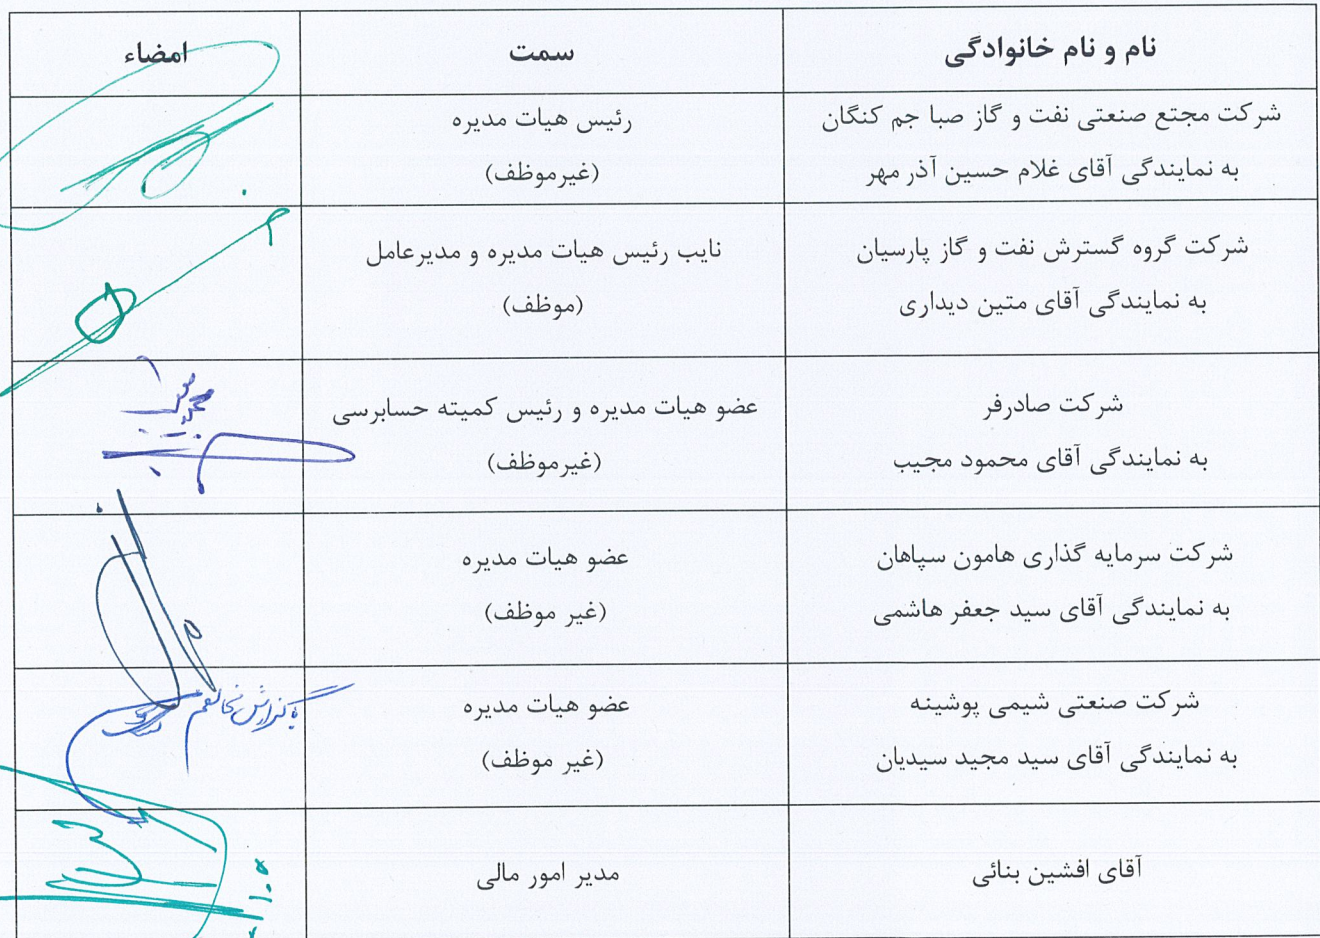 نام و نام خانوادگی
سمت
امضاء
شرکت مجتع صنعتی نفت و گاز صبا جم کنگان
به نمایندگی آقای غلام حسین آذر مهر
رئیس هیات مدیره
(غیرموظف)
شرکت گروه گسترش نفت و گاز پارسیان
به نمایندگی آقای متین دیداری
نایب رئیس هیات مدیره و مدیرعامل
(موظف)
شرکت صادرفر
به نمایندگی آقای محمود مجیب
عضو هیات مدیره و رئیس کمیته حسابرسی
(غیرموظف)
شرکت سرمایه گذاری هامون سپاهان
به نمایندگی آقای سید جعفر هاشمی
عضو هیات مدیره
(غیر موظف)
شرکت صنعتی شیمی پوشینه
به نمایندگی آقای سید مجید سیدیان
عضو هیات مدیره
(غیر موظف)
با گزارش مخالفم
آقای افشین بنائی
مدیر امور مالی